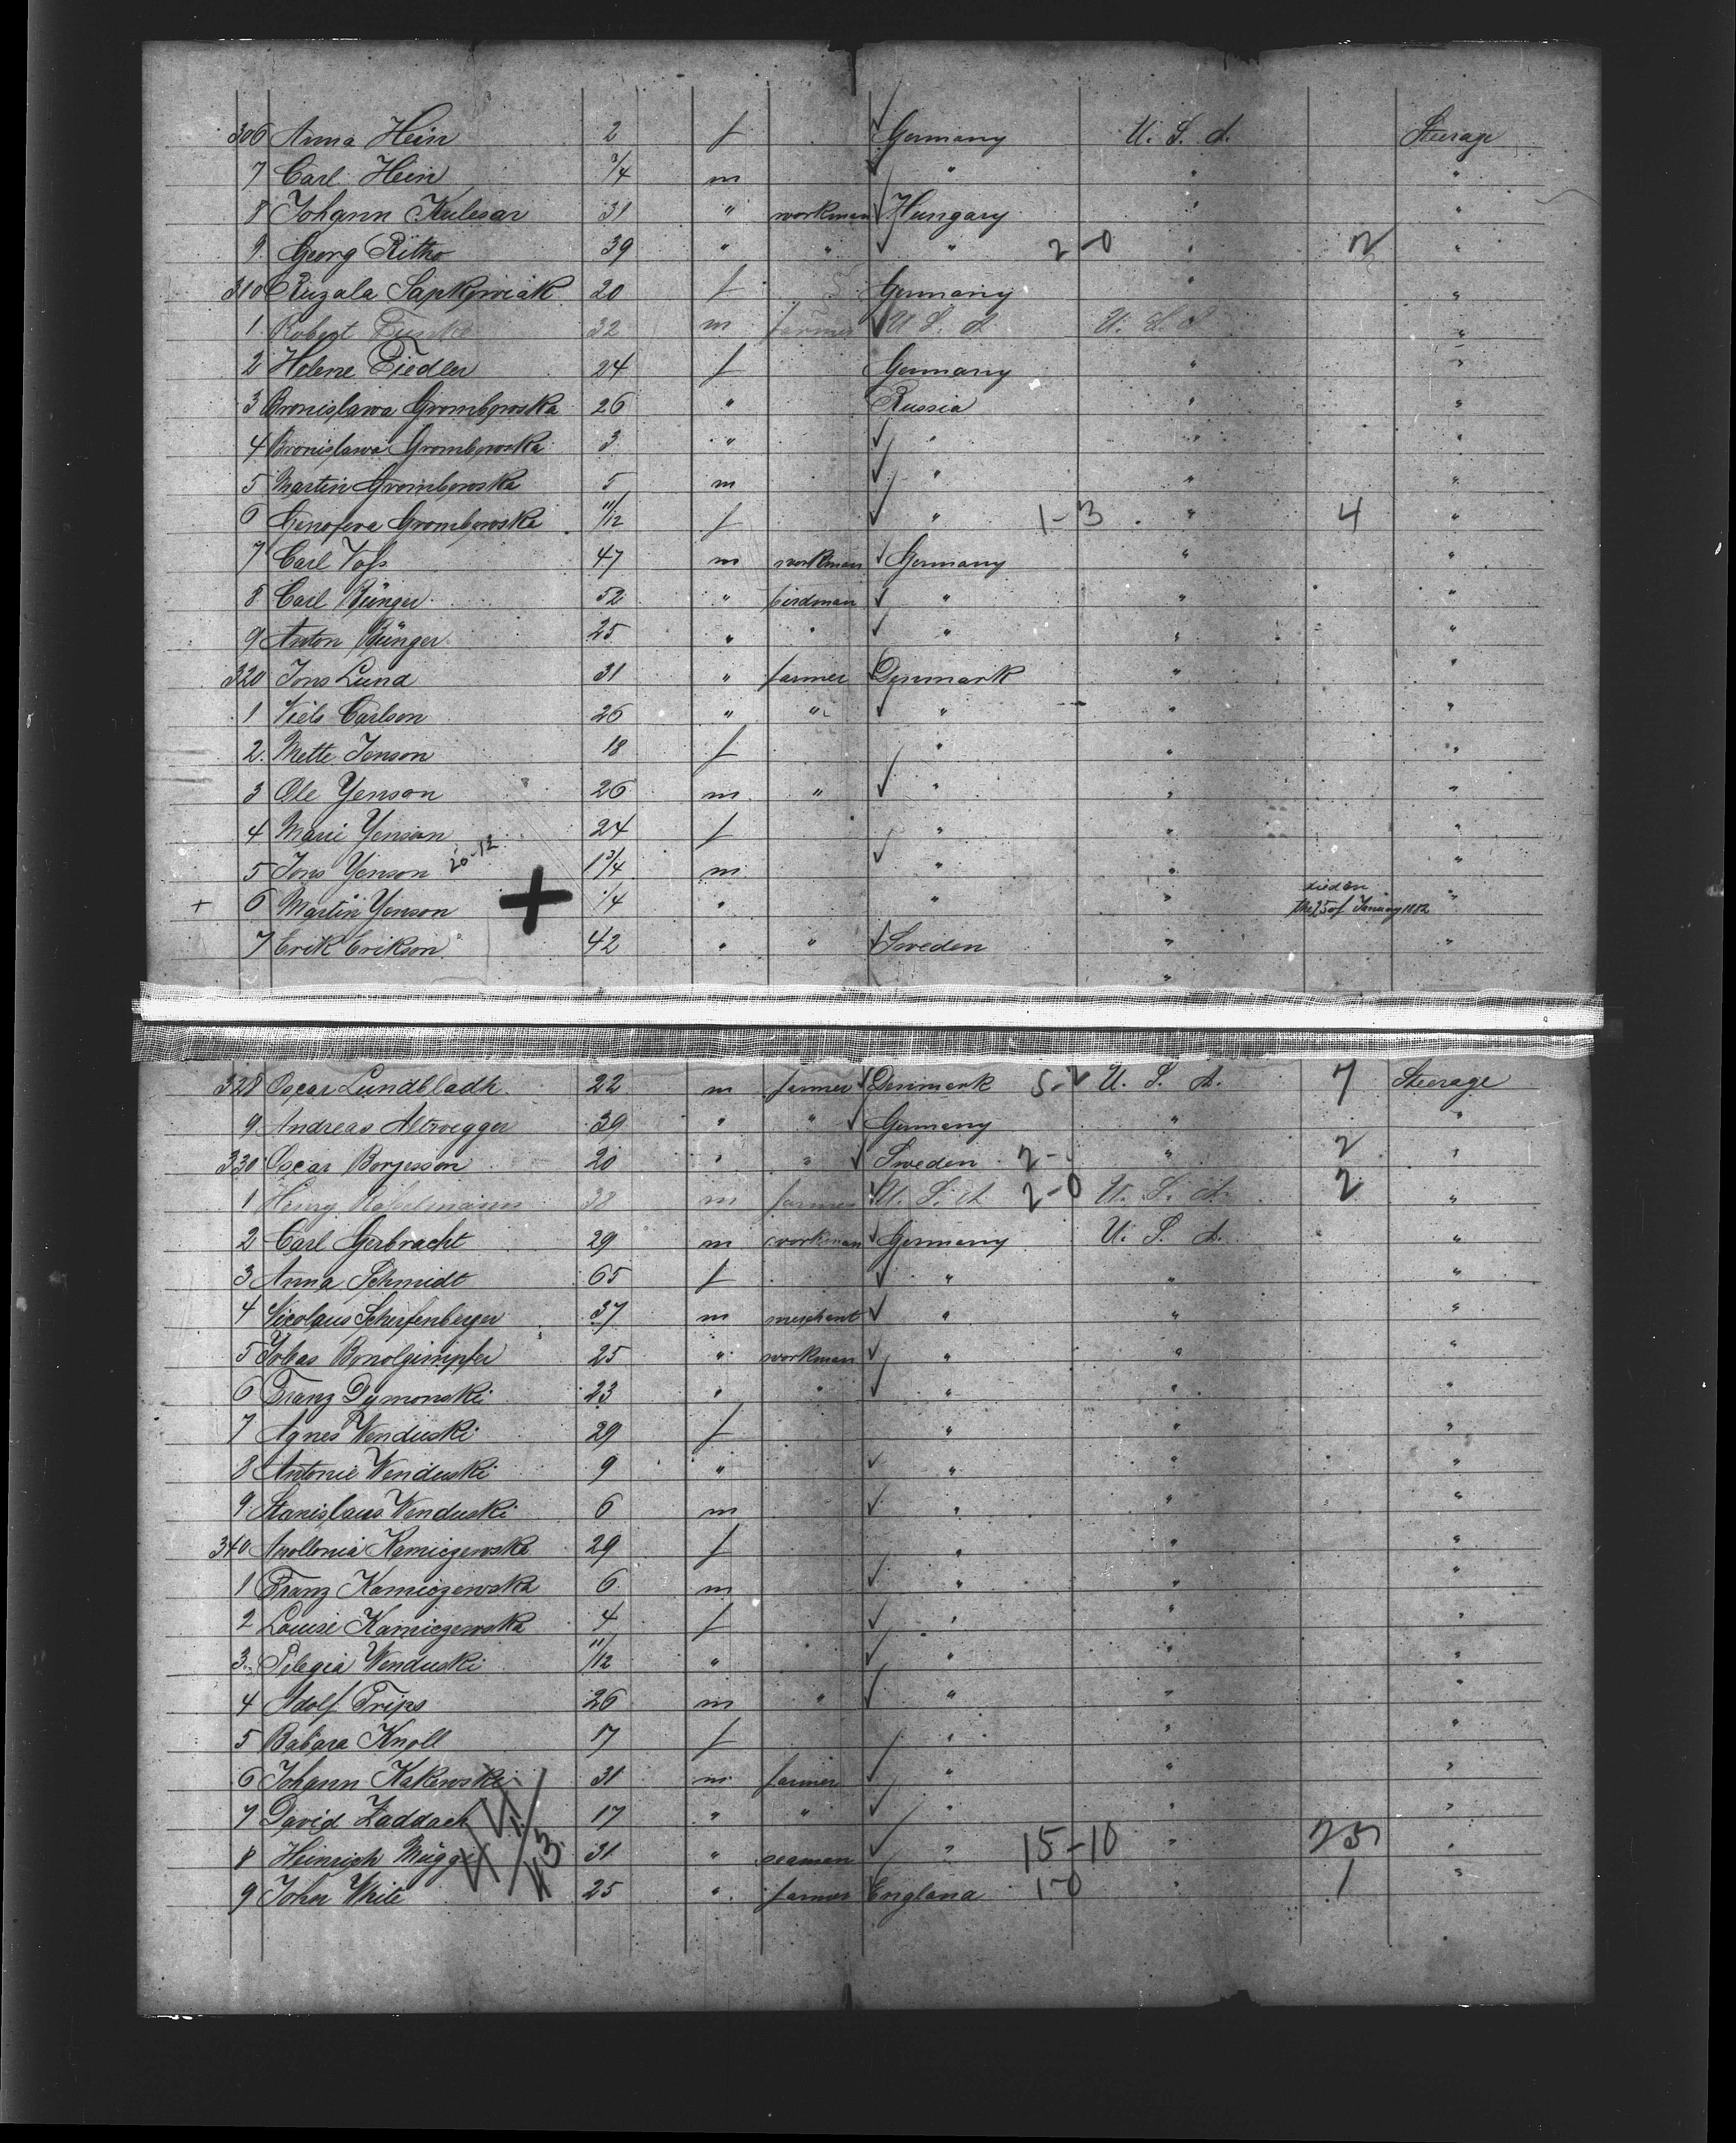 306 Anna Hein 2 f Germany U. S. A. Steerage
7 Carl Hein 3/4 m " " "
8 Johann Kulesar 31 " workman Hungary " "
9. Georg Ritho 39 " " " 2-0 " 2 "
310 Ruzala Sapkowiak 20 f Germany " "
1. Robert 32 m farmer U S. A U. S. A "
2 Helene Fiedler 24 f Germany " "
3 Bronislawa Grombowska 26 " Russia " "
4 Bronislawa Grombowska 3 " " " "
5 Martin Grombowska 5 m " " "
6 Genofeva Grombowska 11/12 f " 1-3 " 4 "
7 Carl Voß 47 m workman Germany " "
8 Carl Bünger 52 " birdman " " "
9 Anton Bünger 25 " " " " "
320 Jons Lund 31 " farmer Denmark " "
1 Niels Carlson 26 " " " " "
2. Mette Jonson 18 f " " "
3 Ole Yenson 26 m " " " "
4 Marie Yenson 24 f " " "
5 Jons Yenson 20-12 1 3/4 m " " "
+ 6 Martin Yenson + 1/4 " " " died on the 25 of January 1882 "
7 Erik Erikson 42 " " Sweden " "
"
328 Oscar Lundbladh 22 m farmer Denmark 5-2 U. S. A. 7 Steerage
9 Andreas Altwegger 39 " " Germany " "
330 Oscar Borjesson 20 " " Sweden 2- " 2 "
1 Henry 38 m farmer U. S. A 2-0 U. S. A. 2 "
2 Carl Gerbracht 29 m workman Germany U. S. A. "
3 Anna Schmidt 65 f " " "
4 Nicolaus Scherfenberger 37 m merchant " " "
5 25 " workman " " "
6 Franz Dymonski 23 " " " " "
7 Agnes Wenduski 29 f " " "
8 Antonie Wenduski 9 " " " "
9 Stanislaus Wenduski 6 m " " "
340 Apollonia Kamiczewska 29 f " " "
1 Franz Kamiczewska 6 m " " "
2 Louise Kamiczewska 4 f " " "
3. Pelegia Wenduski 11/12 " " " "
4 Adolf Trips 26 m " " " "
5 Babara Knoll 17 f " " "
6 Johann Kakewski 31 m farmer " " "
7 David Zaddach 17 " " " " "
8 Heinrich Mügge 31 " seaman " 15-10 " 25 "
9 John White 25 " farmer England 1-0 " 1 "